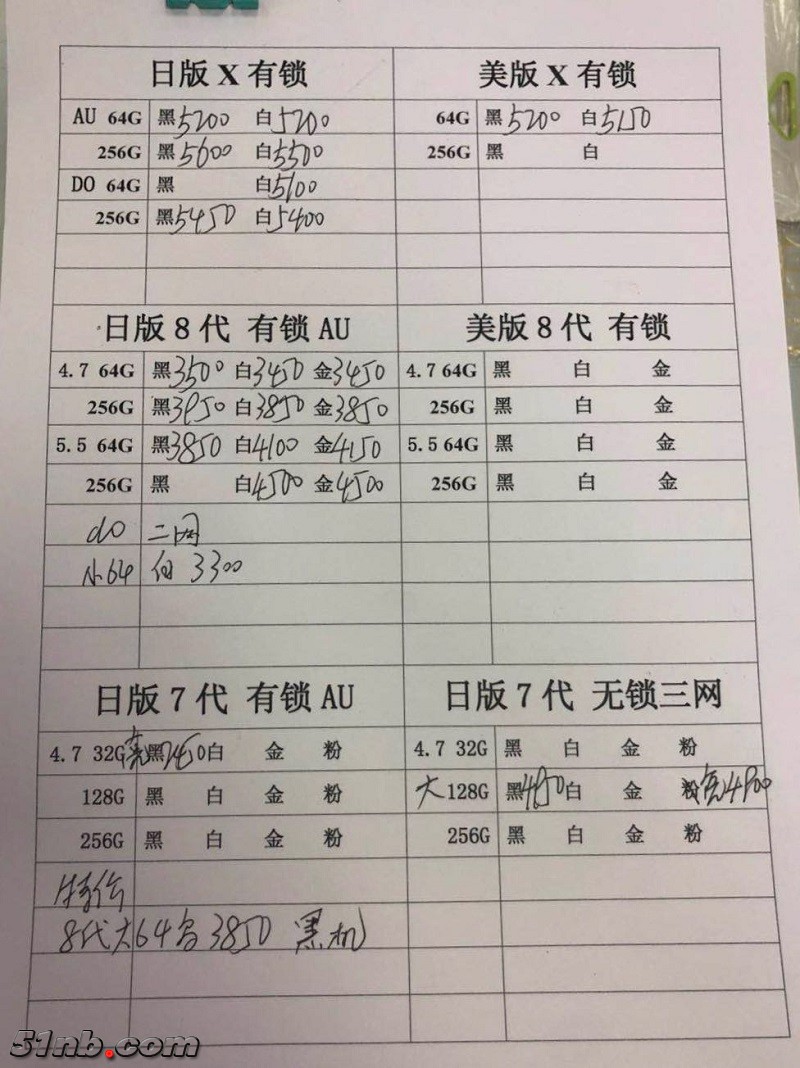 日版 X 有锁 美版 X 有锁
AU 64G 黑5200 白5200 64G 黑5200 白5150
256G 黑5600 白5500 256G 黑 白
DO 64G 黑 白5100
256G 黑5450 白5400
日版 8 代 有锁 AU 美版 8 代 有锁
4.7 64G 黑3500 白3450 金3450 4.7 64G 黑 白 金
256G 黑3950 白3850 金3850 256G 黑 白 金
5.5 64G 黑3850 白4100 金4150 5.5 64G 黑 白 金
256G 黑 白4500 金4500 256G 黑 白 金
do 二网
小64 白 3300
日版 7 代 有锁 AU 日版 7 代 无锁三网
4.7 32G 亮黑2450 白 金 粉 4.7 32G 黑 白 金 粉
128G 黑 白 金 粉 大 128G 黑4950 白 金 粉 亮4900
256G 黑 白 金 粉 256G 黑 白 金 粉
特价
8代大64 3850 黑机
51nb.com